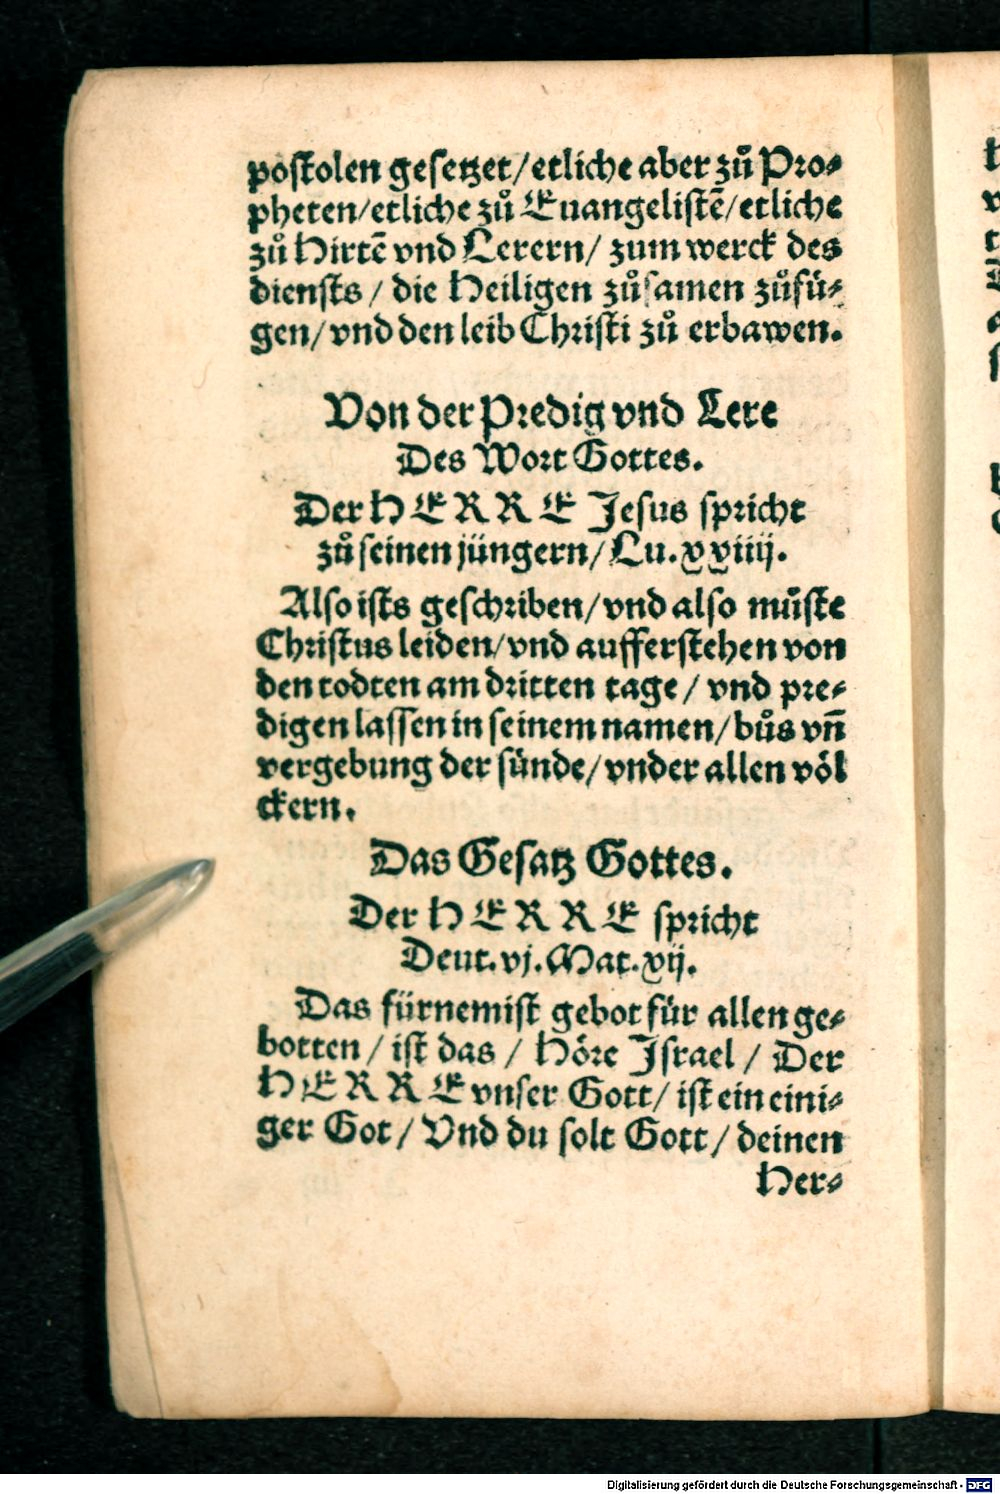 postolen gesetzet/etliche aber zuͦ Pro-
pheten/etliche zuͦ Euangelistē/etliche
zuͦ Hirtē vnd Lerern/ zum werck des
diensts / die Heiligen zuͦsamen zuͦfü-
gen/vnd den leib Christi zuͦ erbawen.
Von der Predig vnd Lere
Des Wort Gottes.
Der HERRE Jesus spricht
zuͦ seinen jüngern/ Lu. xxiiij.
Also ists geschriben/vnd also muͦste
Christus leiden/vnd aufferstehen von
den todten am dritten tage / vnd pre-
digen lassen in seinem namen/buͦs vn̄
vergebung der sünde/vnder allen völ
ckern.
Das Gesatz Gottes.
Der HERRE spricht
Deut. vj. Mat. xij.
Das fürnemist gebot für allen ge-
botten / ist das / Höre Israel / Der
HERRE vnser Gott/ ist ein eini-
ger Got / Vnd du solt Gott/ deinen
Her-
Digitalisierung gefördert durch die Deutsche Forschungsgemeinschaft - DFG